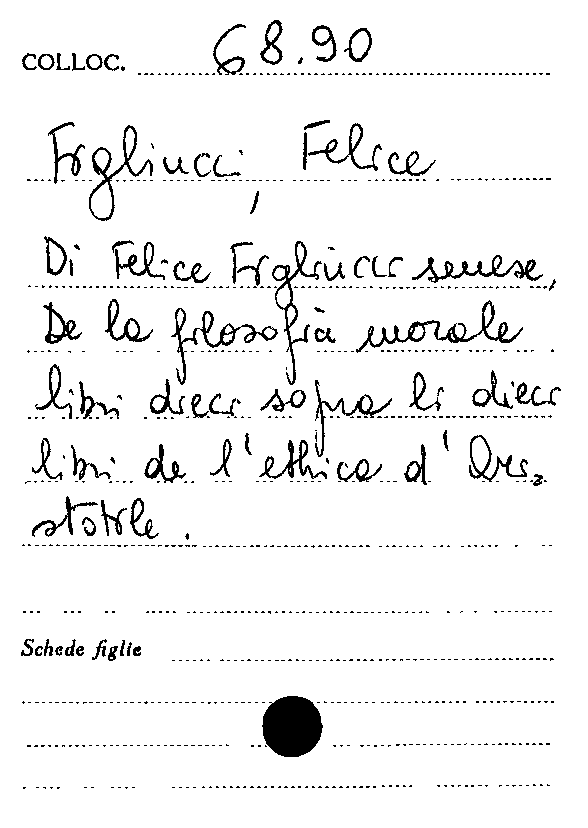 COLLOC. 68.90
Figliucci, Felice
Di Felice Figliucci senese,
De la filosofia morale
libri dieci sopra li dieci
libri de l'ethica d'Ari=
stotile.
Schede figlie